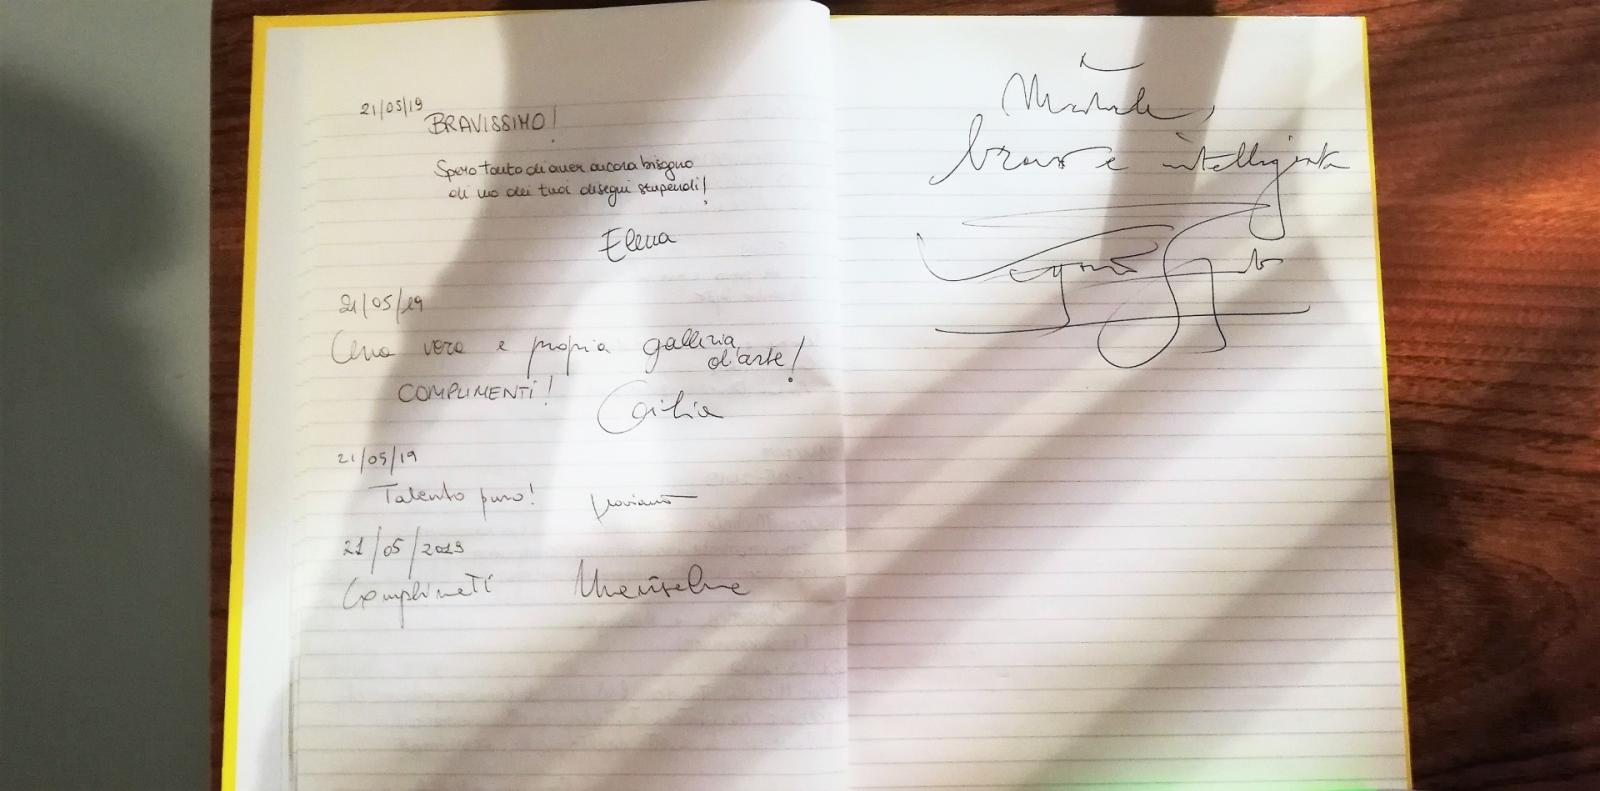 21/05/19
BRAVISSIMO!
Spero tanto di aver ancora bisogno
di uno dei tuoi disegni stupendi!
Elena
21/05/19
Una vera e propria galleria
d'arte!
COMPLIMENTI!
Cecilia
21/05/19
Talento puro!
21/05/2019
Complimeti
Michele,
bravo e intelligente